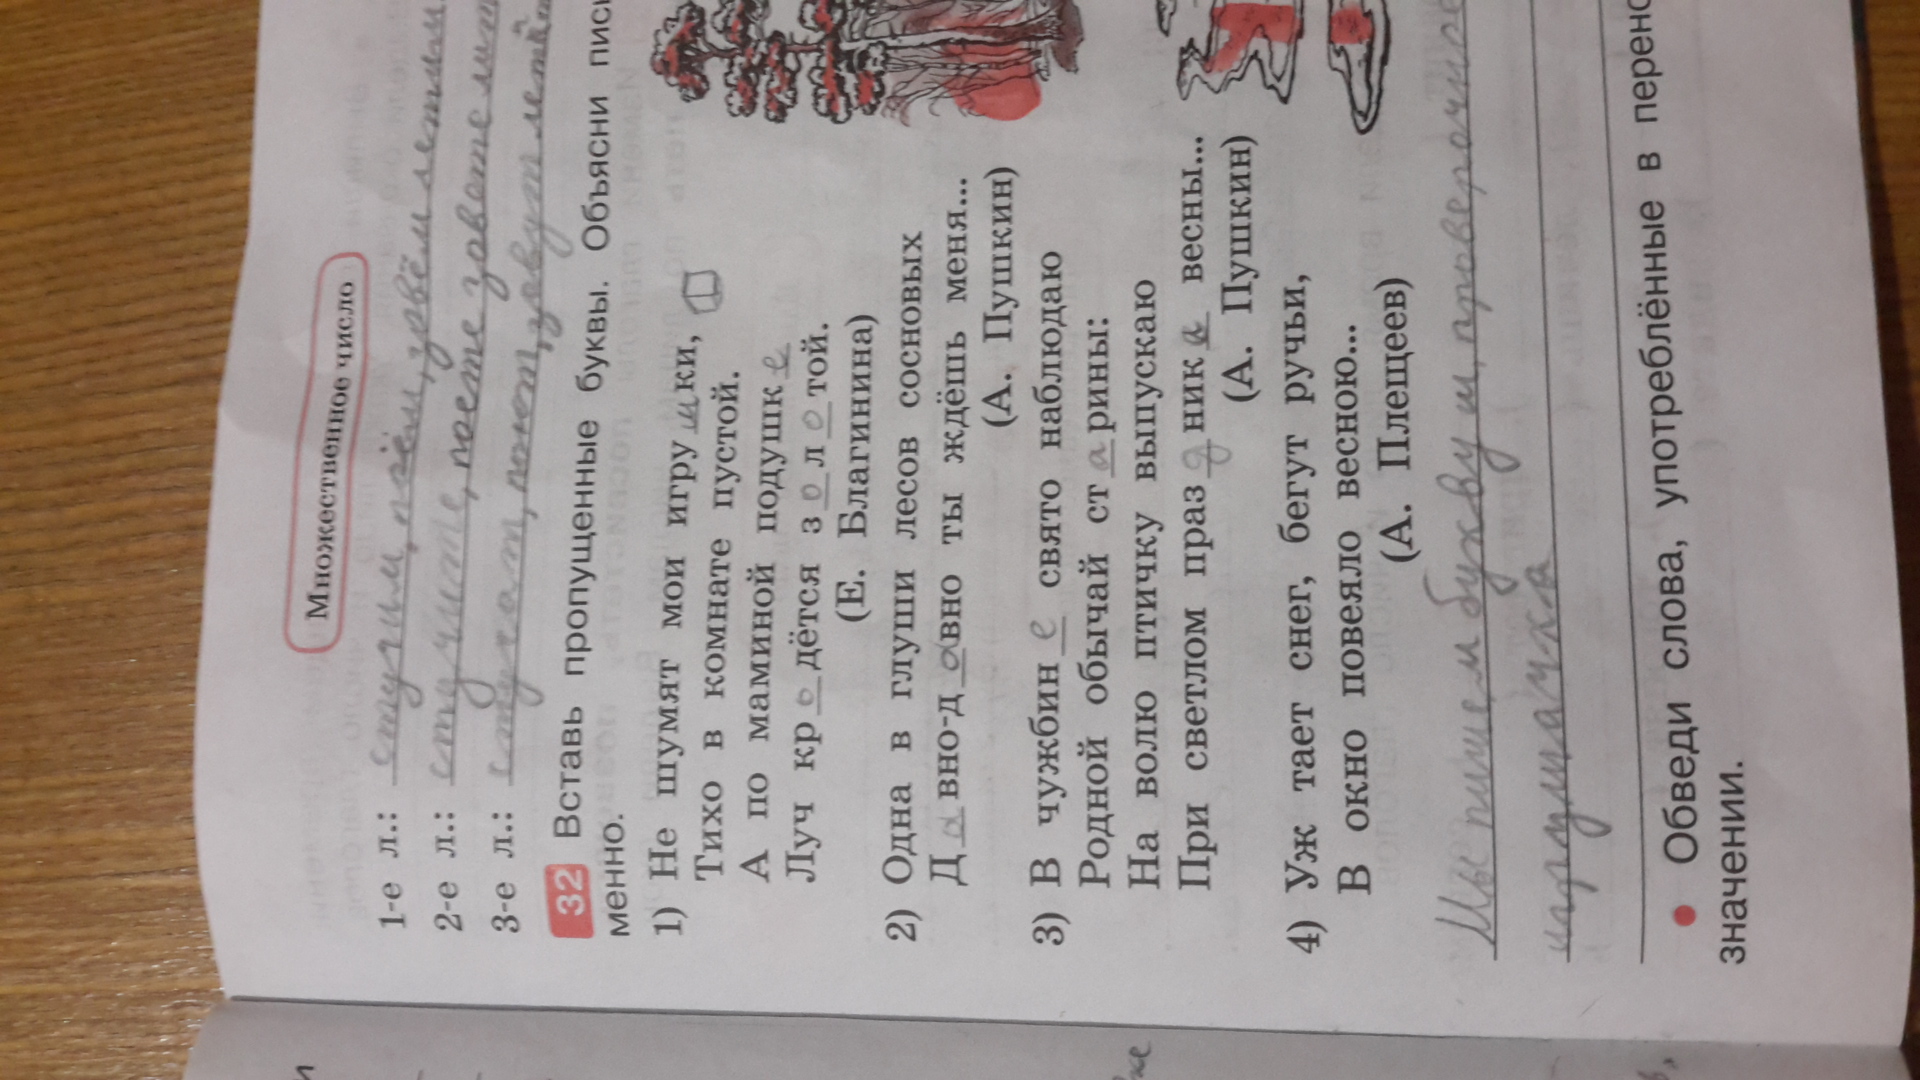 Множественное число
1-е л.: стучим, поём, зовём летим
2-е л.: стучите, поете зовете
3-е л.: стучат, поют, зовут
32 Вставь пропущенные буквы. Объясни
менно.
1) Не шумят мои игрушки,
Тихо в комнате пустой.
А по маминой подушке
Луч кродётся золотой.
(Е. Благинина)
2) Одна в глуши лесов сосновых
Давно-давно ты ждёшь меня...
(А. Пушкин)
3) В чужбине свято наблюдаю
Родной обычай старины:
На волю птичку выпускаю
При светлом празднике весны...
(А. Пушкин)
4) Уж тает снег, бегут ручьи,
В окно повеяло весною...
(А. Плещеев)
Мы пишем букву ш, проверочное
игрушечка
• Обведи слова, употреблённые в
значении.